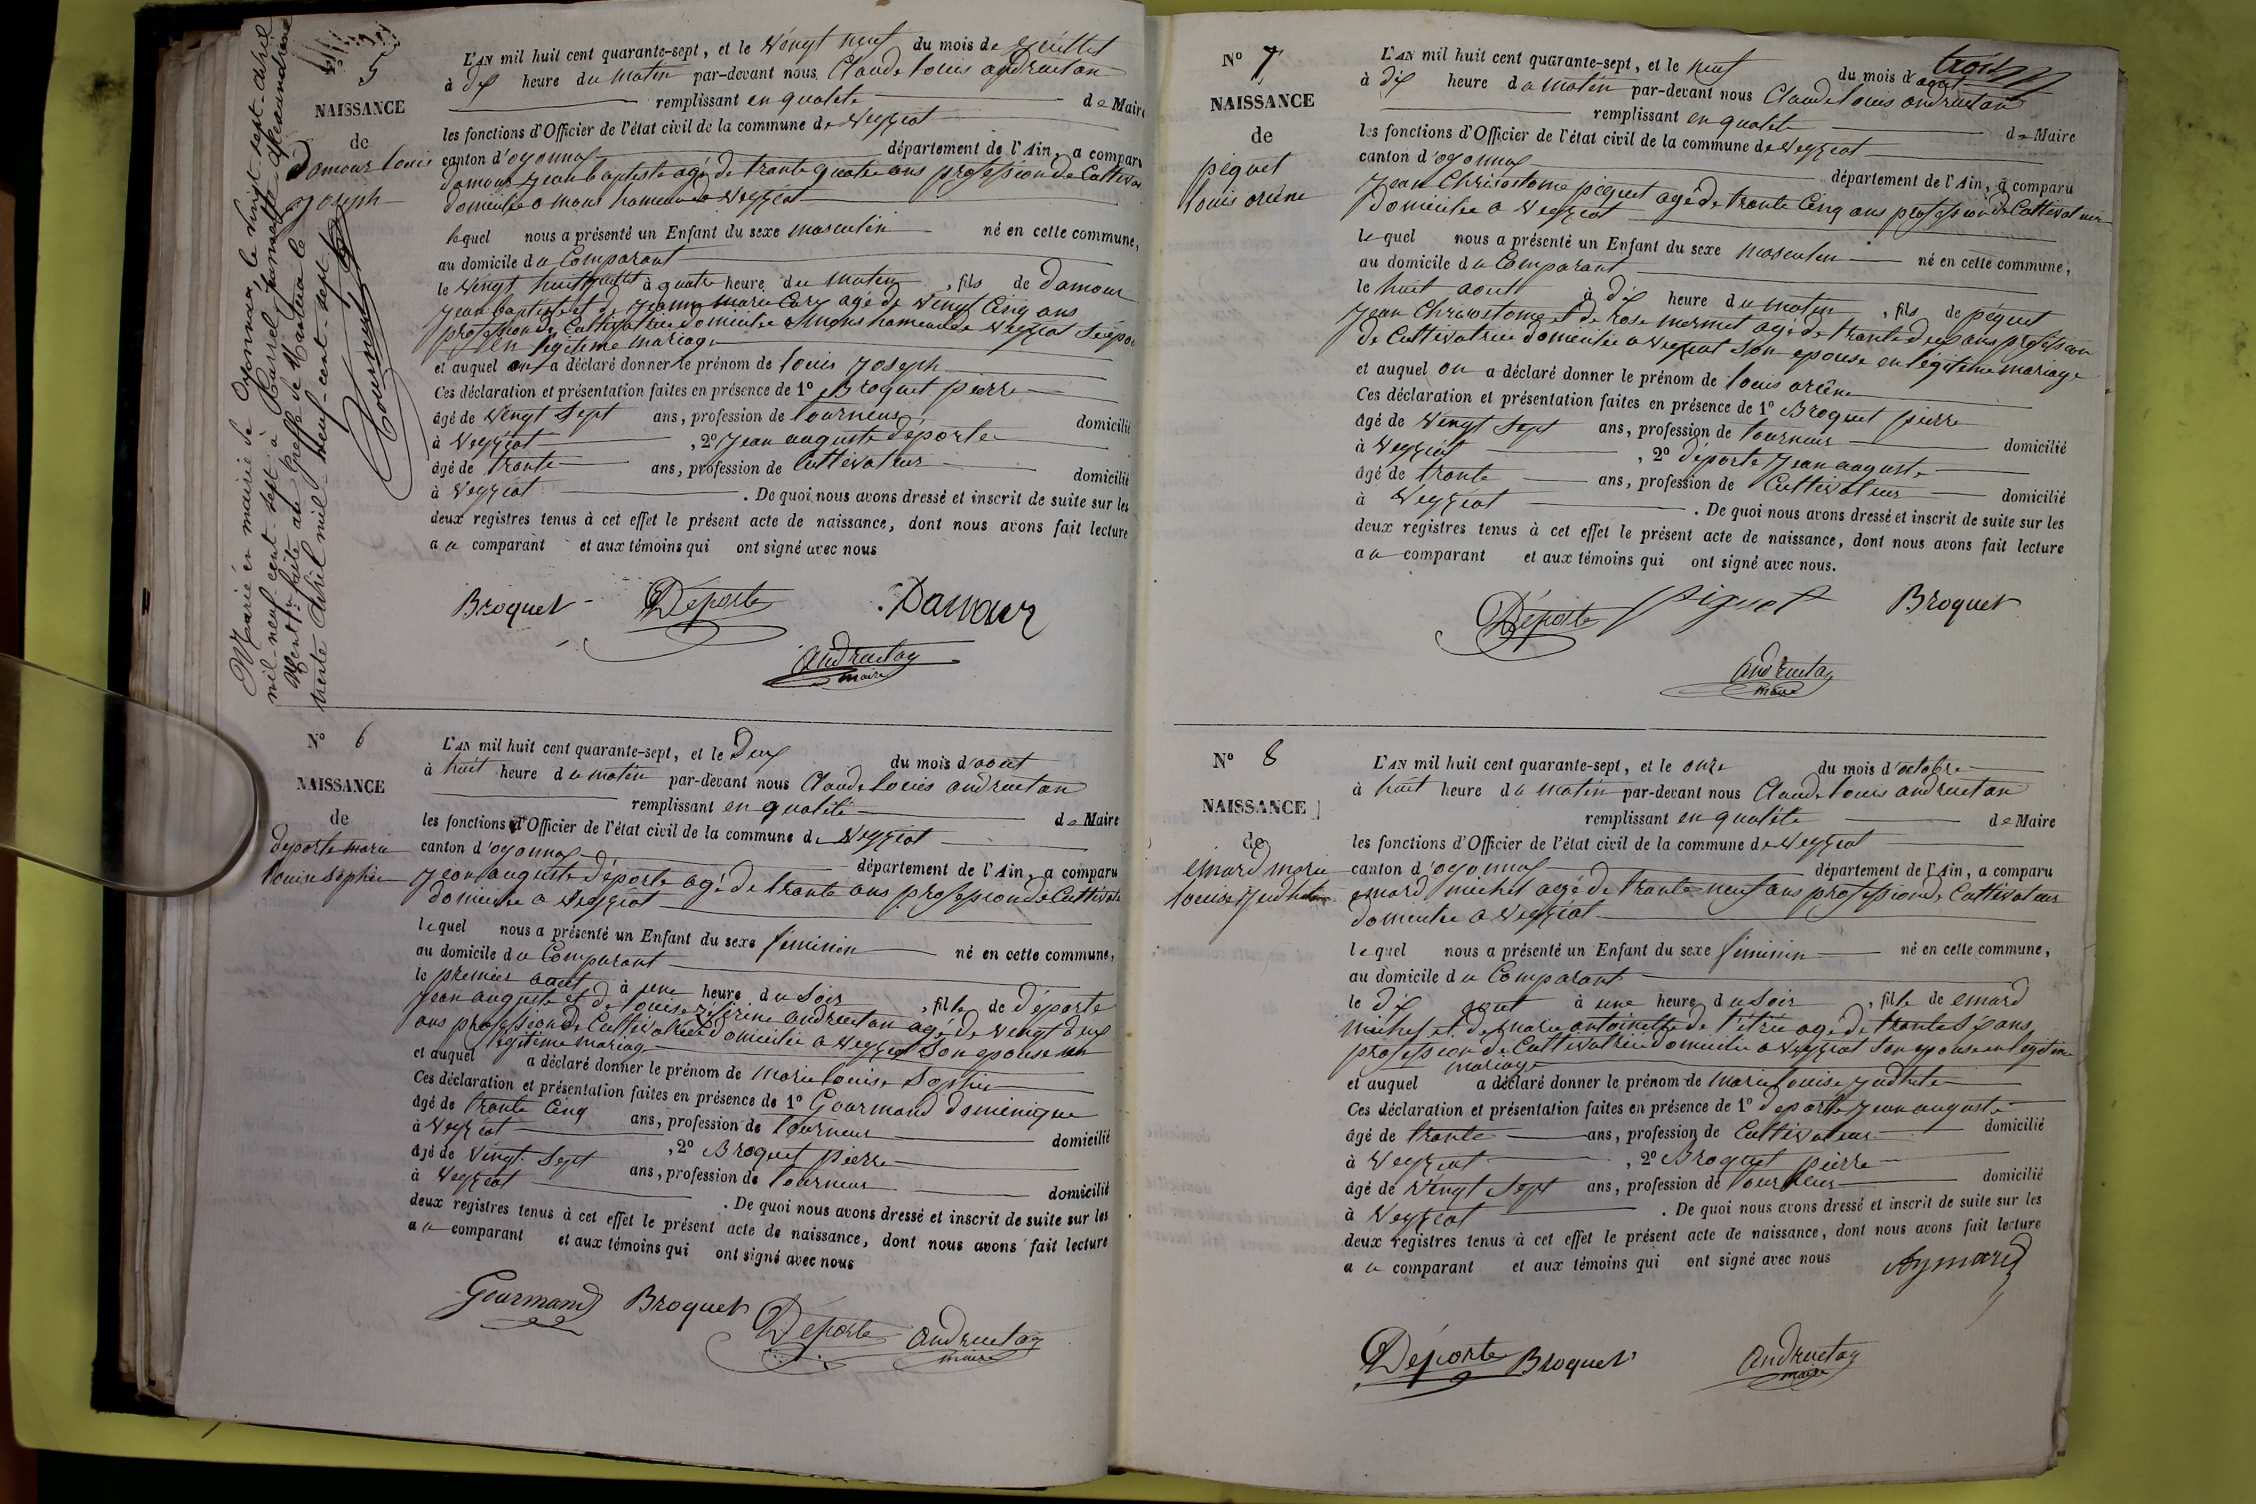 5
NAISSANCE
de
Damour Louis
Joseph
Marié en mairie de Oyonnax le vingt-sept avril
mil-neuf-cent-sept à Pauriel
Ment.on faite au Greffe de Nantua le
trente avril mil-neuf-cent-sept
L'AN mil huit cent quarante-sept, et le Vingt neuf du mois de Juillet
à dix heure du matin par-devant nous Claude Louis andruetan
remplissant en qualité de Maire
les fonctions d'Officier de l'état civil de la commune de Veyziat
canton d'oyonnax département de l'Ain, a comparu
damour Jean baptiste agé de trante quatre ans profession de Cultivat
domicilié a mons hameau de Veyziat
lequel nous a présenté un Enfant du sexe masculin né en cette commune,
au domicile du Comparant
le Vingt huit juillet à quatre heure du matin, fils de damour
Jean baptiste et de Jeanne marie Cary agé de Vingt Cinq ans
profession de Cultivatrice domiciliée a mons hameau de Veyziat
en légitime mariage
et auquel on a déclaré donner le prénom de louis Joseph
Ces déclaration et présentation faites en présence de 1º Broquet pierre
âgé de Vingt Sept ans, profession de tourneur domicilié
à Veyziat, 2º Jean auguste déporte
âgé de trante ans, profession de Cultivateur domicilié
à Veyziat. De quoi nous avons dressé et inscrit de suite sur les
deux registres tenus à cet effet le présent acte de naissance, dont nous avons fait lecture
au comparant et aux témoins qui ont signé avec nous
Broquet Déporte Damour
andruetan
maire
Nº 6
NAISSANCE
de
deporte marie
louise Sophie
L'AN mil huit cent quarante-sept, et le Deux du mois d'aout
à huit heure du matin par-devant nous Claude Louis andruetan
remplissant en qualité de Maire
les fonctions d'Officier de l'état civil de la commune de Veyziat
canton d'oyonnax département de l'Ain, a comparu
Jean auguste déporte agé de trante ans profession de Cultivate
domicilié a Veyziat
lequel nous a présenté un Enfant du sexe féminin né en cette commune,
au domicile du Comparant
le premier aout à une heure du Soir, fille de déporte
Jean auguste et de louise Zéfirine andruetan agé de Vingt deux
ans profession de Cultivatrice domiciliée a Veyziat Son epouse en
légitime mariage
et auquel a déclaré donner le prénom de marie louise Sophie
Ces déclaration et présentation faites en présence de 1º Gourmand dominique
âgé de trante Cinq ans, profession de tourneur domicilié
à Veyziat, 2º Broquet pierre
âgé de Vingt Sept ans, profession de tourneur domicilié
à Veyziat. De quoi nous avons dressé et inscrit de suite sur les
deux registres tenus à cet effet le présent acte de naissance, dont nous avons fait lecture
au comparant et aux témoins qui ont signé avec nous
Gourmand Broquet Déporte andruetan
maire
trois
Nº 7
NAISSANCE
de
péquet
louis arcène
L'AN mil huit cent quarante-sept, et le neuf du mois d'aout
à dix heure du matin par-devant nous Claude Louis andruetan
remplissant en qualité de Maire
les fonctions d'Officier de l'état civil de la commune de Veyziat
canton d'oyonnax département de l'Ain, a comparu
Jean Chrisostome péquet agé de trante Cinq ans profession de Cultivateur
domicilié a Veyziat
lequel nous a présenté un Enfant du sexe masculin né en cette commune,
au domicile du Comparant
le huit aout à dix heure du matin, fils de péquet
Jean Chrisostome et de rose mermet agé de trante deux ans profession
de Cultivatrice domiciliée a Veyziat Son epouse en légitime mariage
et auquel on a déclaré donner le prénom de louis arcène
Ces déclaration et présentation faites en présence de 1º Broquet pierre
âgé de Vingt Sept ans, profession de tourneur domicilié
à Veyziat, 2º déporte Jean auguste
âgé de trante ans, profession de Cultivateur domicilié
à Veyziat. De quoi nous avons dressé et inscrit de suite sur les
deux registres tenus à cet effet le présent acte de naissance, dont nous avons fait lecture
au comparant et aux témoins qui ont signé avec nous.
Déporte piquet Broquet
andruetan
maire
Nº 8
NAISSANCE
de
émard marie
louise
L'AN mil huit cent quarante-sept, et le onze du mois d'octobre
à huit heure du matin par-devant nous Claude Louis andruetan
remplissant en qualité de Maire
les fonctions d'Officier de l'état civil de la commune de Veyziat
canton d'oyonnax département de l'Ain, a comparu
emard michel agé de trante-neuf ans profession de Cultivateur
domicilié a Veyziat
lequel nous a présenté un Enfant du sexe féminin né en cette commune,
au domicile du Comparant
le dix aout à une heure du Soir, fille de emard
michel et de marie antoinette de agé de trante Six ans
profession de Cultivatrice domiciliée a Veyziat Son epouse en légitime
mariage
et auquel a déclaré donner le prénom de marie louise
Ces déclaration et présentation faites en présence de 1º deporte Jean auguste
âgé de trante ans, profession de Cultivateur domicilié
à Veyziat, 2º Broquet pierre
âgé de Vingt Sept ans, profession de tourneur domicilié
à Veyziat. De quoi nous avons dressé et inscrit de suite sur les
deux registres tenus à cet effet le présent acte de naissance, dont nous avons fait lecture
au comparant et aux témoins qui ont signé avec nous
Aymard
Déporte Broquet andruetan
maire